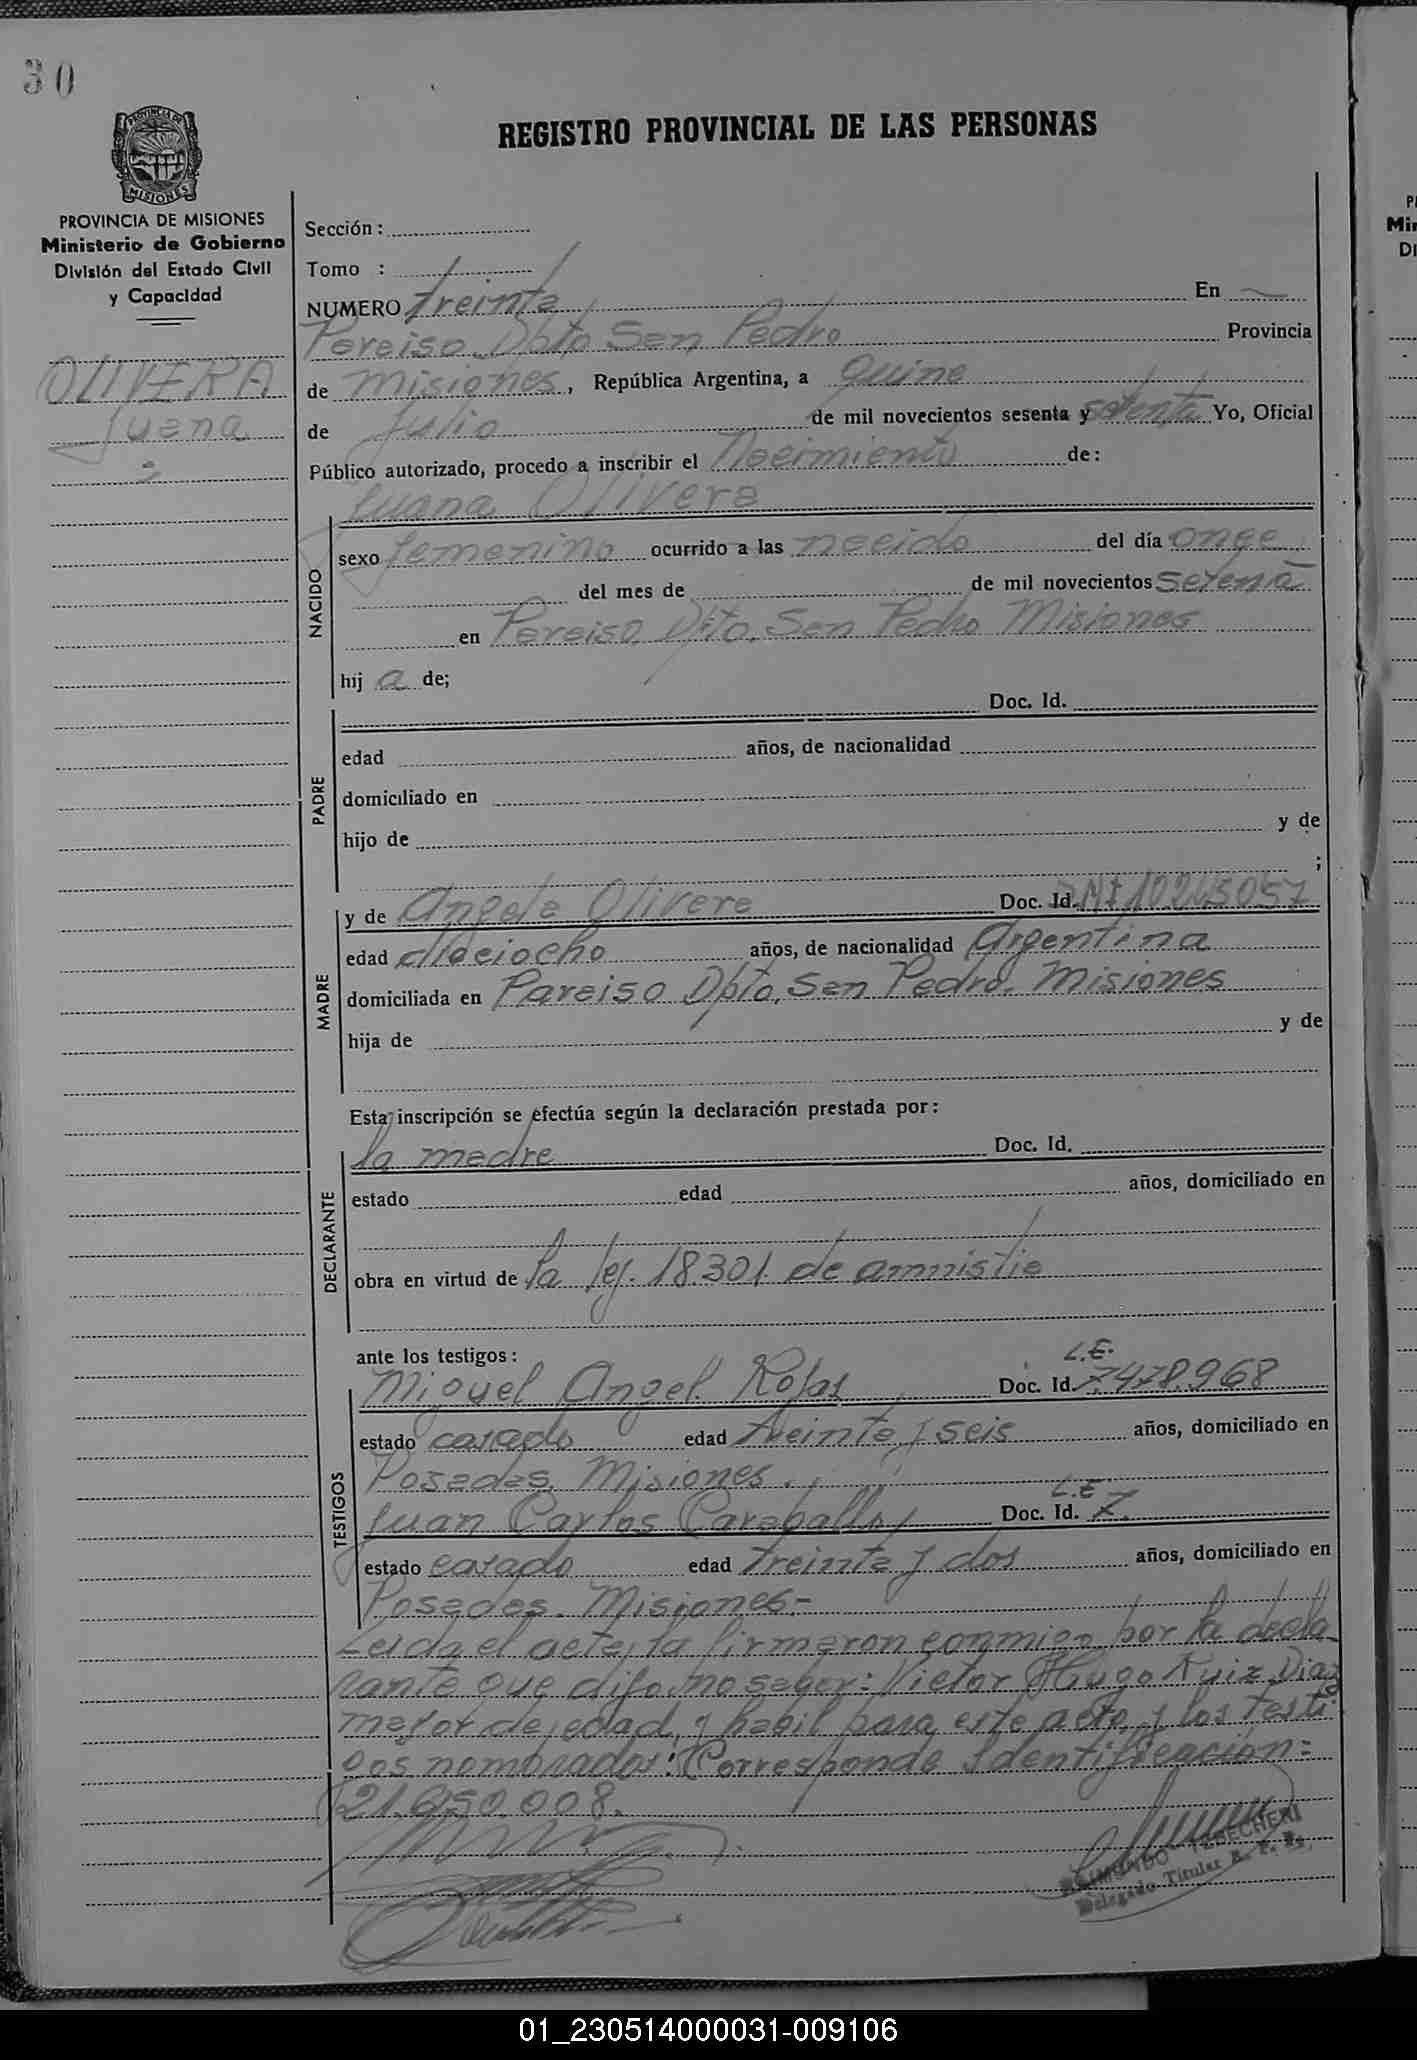 30
REGISTRO PROVINCIAL DE LAS PERSONAS
PROVINCIA DE MISIONES
Ministerio de Gobierno
División del Estado Civil
y Capacidad
OLIVERA
Juana
Sección :
Tomo :
NUMERO treinta En
Paraiso Dpto San Pedro Provincia
de Misiones, República Argentina, a quince
de Julio de mil novecientos sesenta y setenta Yo, Oficial
Público autorizado, procedo a inscribir el Nacimiento de:
Juana Olivera
NACIDO
sexo femenino ocurrido a las nacido del día onge
del mes de de mil novecientos setenta
en Paraiso Dpto. San Pedro Misiones
hij a de;
Doc. Id.
PADRE
edad años, de nacionalidad
domiciliado en
hijo de y de
;
MADRE
y de Angela Olivera Doc. Id. 10245057
edad dieciocho años, de nacionalidad Argentina
domiciliada en Paraiso Dpto. San Pedro. Misiones
hija de y de
Esta inscripción se efectúa según la declaración prestada por:
DECLARANTE
la madre Doc. Id.
estado edad años, domiciliado en
obra en virtud de la ley. 18.301. de amnistia
ante los testigos:
TESTIGOS
L.E.
Miguel Angel Rojas Doc. Id. 7.478.968
estado casado edad treinta y seis años, domiciliado en
Posadas. Misiones.
L.E
Juan Carlos Caraballo Doc. Id. 7.
estado casado edad treinta y dos años, domiciliado en
Posadas. Misiones.-
Leida el acta, la firmaron conmigo por la decla-
rante que dijo no saber: Victor Hugo Ruiz Diaz
mayor de edad, y habil para este acto, y los testi
gos nombrados: Corresponde Identificacion:
21.650.008.
RAIMUNDO
Delegado Titular R. P. P.
01_230514000031-009106